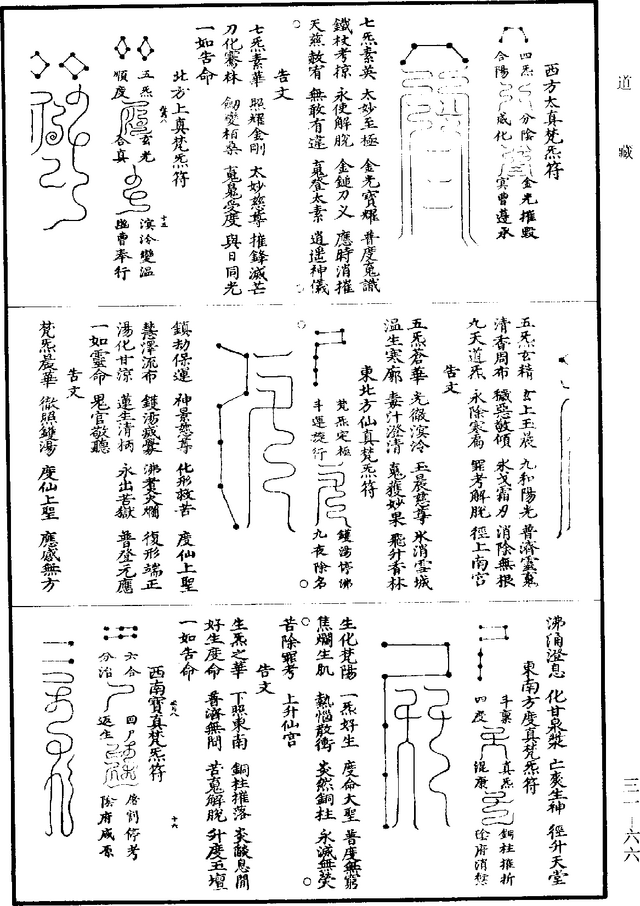 道藏
西方太真梵炁符
四炁 分陰 金光摧毀
合陽 咸化 冥曹遵承
七炁素英 太妙至極 金光寶耀 普度䰟識
鐵杖考掠 永使解脫 金鎚刀义 應時消摧
天慈敷宥 無敢有違 䰟登太素 逍遥神儀
告文
七炁素華 照耀金剛 太妙慈尊 摧鋒滅芒
刀化騫林 劒變栢桑 䰟䰟受度 與日同光
一如告命
北方上真梵炁符
五炁 玄光 溟泠變温
順度 合真 幽曹奉行
十五
五炁玄精 玄上玉晨 九和陽光 普濟靈䰟
清香周布 穢惡敢傾 氷戈霜刃 消除無根
九天道炁 永除寒裔 罪考解脫 徑上南宫
告文
五炁蒼華 光徹溟泠 玉晨慈尊 氷消雪城
温生寒廓 毒汁澄清 䰟獲妙果 飛升青林
東北方仙真梵炁符
梵炁定極 鑊湯停沸
斗運旋行 九夜除名
鎮劫保運 神景慈尊 化形救苦 度仙上聖
慧澤流布 鑊湯疲爨 沸煑炎爛 復形端正
湯化甘涼 蓮生清柄 永出苦獄 普登元應
一如靈命 鬼官敬聽
告文
梵炁晨華 徹照鑊湯 度仙上聖 應感無方
沸涌澄息 化甘泉漿 亡爽生神 徑升天堂
東南方度真梵炁符
斗稟 真炁 銅柱摧折
四度 混康 陰府消愆
生化梵陽 一炁好生 度命大聖 普度無窮
焦爛生肌 熱惱敢衝 炎然銅柱 永滅無熒
苦除罪考 上升仙宫
告文
生炁之華 下照東南 銅柱摧落 炎酸息閒
好生度命 普濟無間 苦䰟解脫 升度玉壇
一如告命
西南寶真梵炁符
六合 四尸 屠割停考
分治 返生 陰府咸原
十六
三一—六六